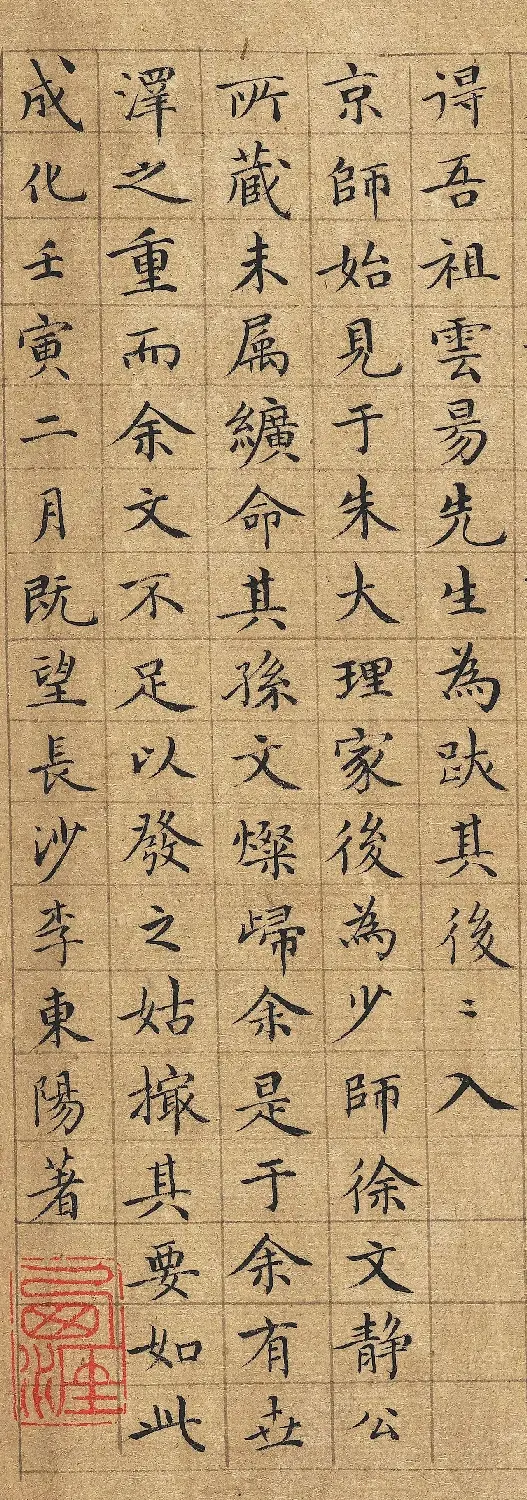 得吾祖雲昜先生為跋其後〻入
京師始見于朱大理家後為少師徐文靜公
所藏未属纊命其孫文燦歸余是于余有世
澤之重而余文不足以發之姑撮其要如此
成化壬寅二月既望長沙李東陽著
西涯